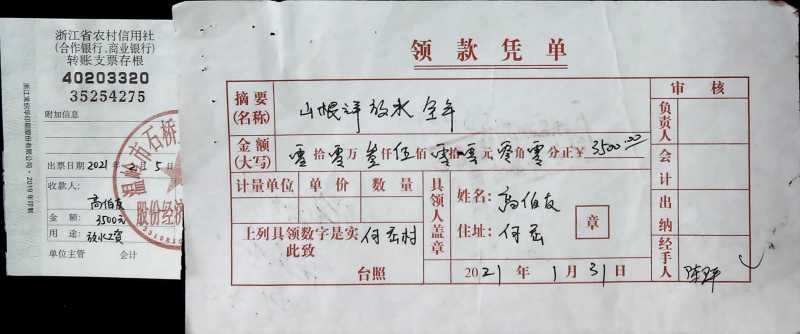 浙江省农村信用社
(合作银行、商业银行)
转账支票存根
40203320
35254275
附加信息
出票日期 2021年2月5日
收款人:
高伯友
金 额: 3500元
用 途: 放水工资
单位主管 会计
温州市石桥
股份经济
领款凭单
摘要
(名称)
山根洋放水 全年
金额
(大写)
零拾零万叁仟伍佰零拾零元零角零分正¥3500.00
计量单位 单价 数量
上列具领数字是实
此致
何岙村
台照
具领人盖章
姓名: 高伯友
住址: 何岙
章
2021年1月31日
审 核
负责人
会计
出纳
经手人